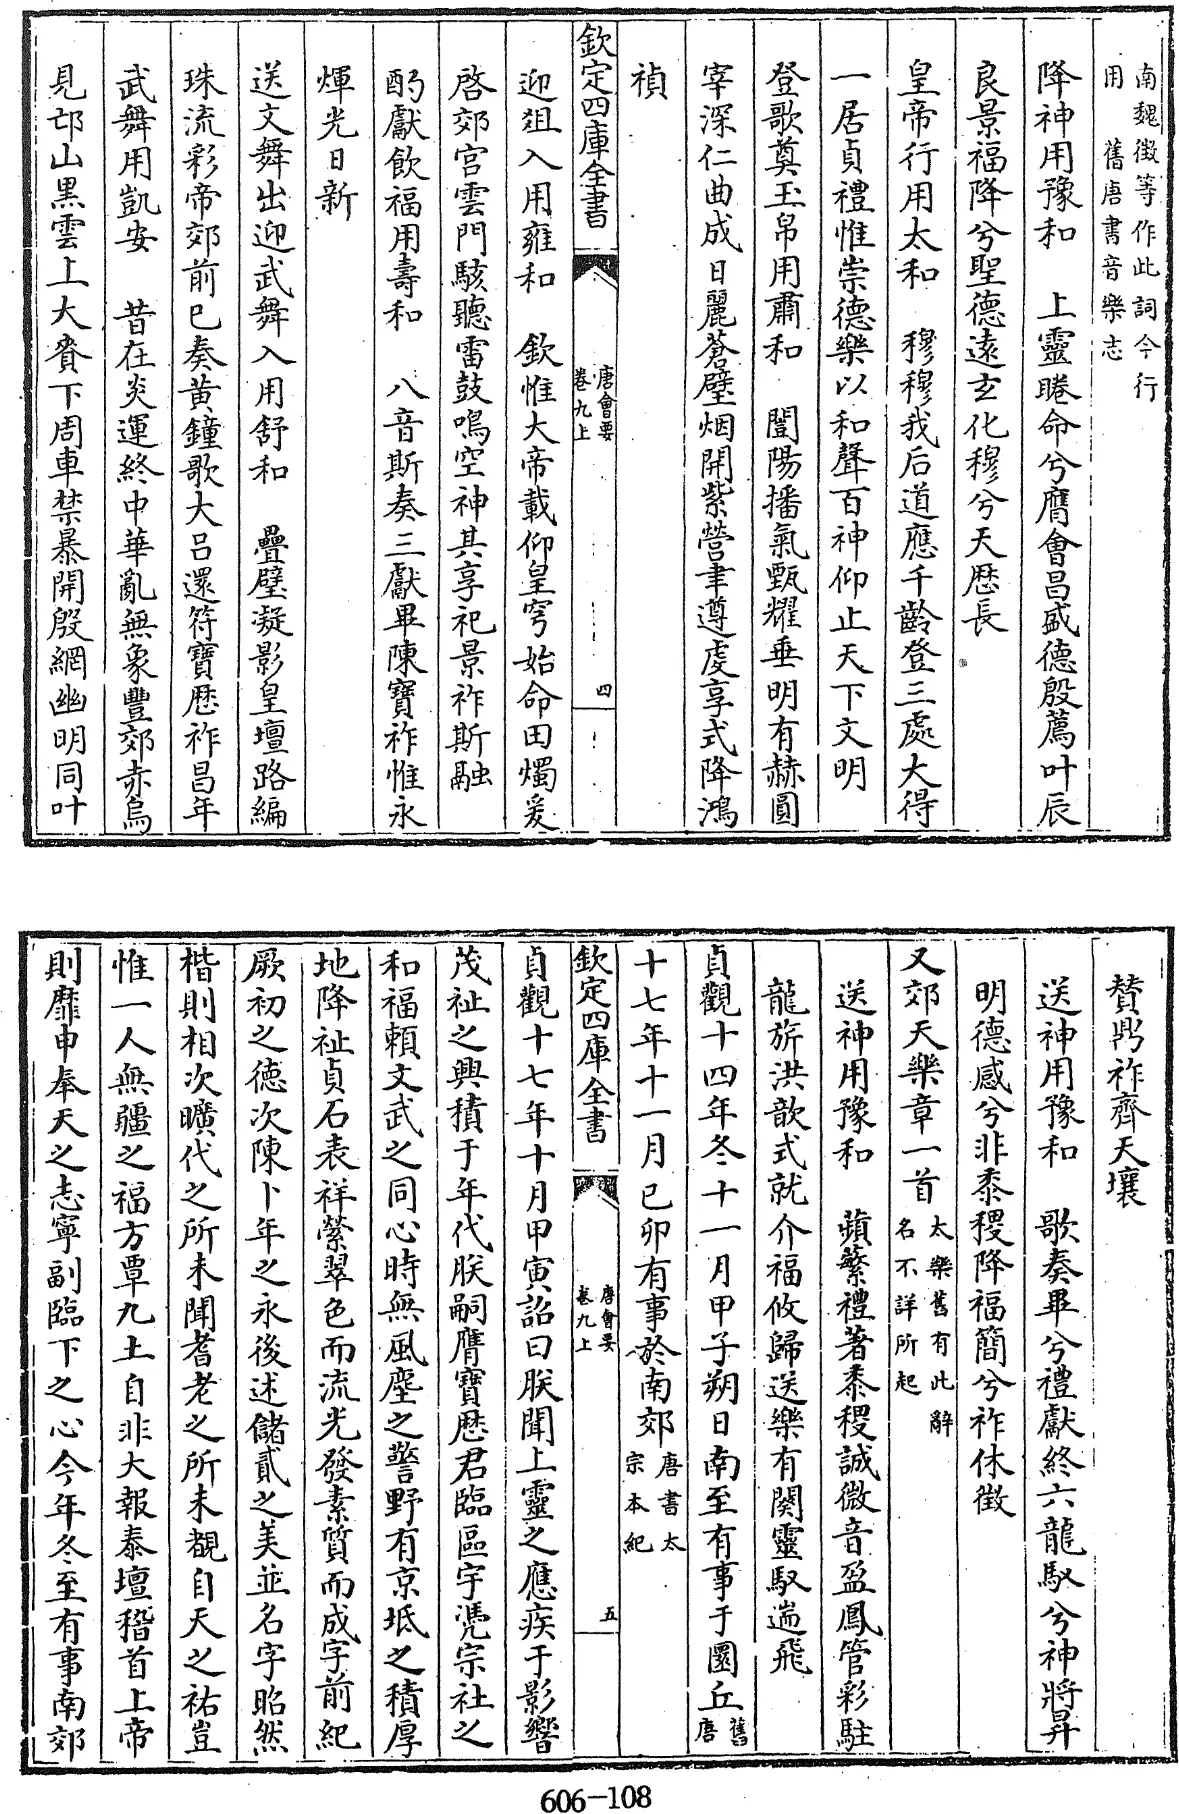 南魏徵等作此詞今行
用　舊唐書音樂志
降神用豫和　上靈睠命兮膺會昌盛德殷薦叶辰
良景福降兮聖德遠玄化穆兮天厯長
皇帝行用太和　穆穆我后道應千齡登三處大得
一居貞禮惟崇德樂以和聲百神仰止天下文明
登歌奠玉帛用肅和　闓陽播氣甄耀垂明有赫圓
宰深仁曲成日麗蒼璧烟開紫營聿遵虔享式降鴻
禎
欽定四庫全書
唐會要
卷九上
四
迎俎入用雍和　欽惟大帝載仰皇穹始命田燭爰
啓郊宫雲門駭聽雷鼓鳴空神其享祀景祚斯融
酌獻飲福用壽和　八音斯奏三獻畢陳寶祚惟永
煇光日新
送文舞出迎武舞入用舒和　疊璧凝影皇壇路編
珠流彩帝郊前已奏黄鐘歌大吕還符寶厯祚昌年
武舞用凱安　昔在炎運終中華亂無象酆郊赤烏
見邙山黒雲上大賚下周車禁暴開殷網幽明同叶
賛鼎祚齊天壤
送神用豫和　歌奏畢兮禮獻終六龍馭兮神將昇
明德感兮非黍稷降福簡兮祚休徴
又郊天樂章一首
太樂舊有此辭
名不詳所起
送神用豫和　蘋蘩禮著黍稷誠微音盈鳳管彩駐
龍旂洪歆式就介福攸歸送樂有闋靈馭遄飛
貞觀十四年冬十一月甲子朔日南至有事于圜丘
舊
唐
十七年十一月己卯有事於南郊
唐書太
宗本紀
欽定四庫全書
唐會要
卷九上
五
貞觀十七年十月甲寅詔曰朕聞上靈之應疾于影響
茂祉之興積于年代朕嗣膺寶厯君臨區宇憑宗社之
和福賴文武之同心時無風塵之警野有京坻之積厚
地降祉貞石表祥縈翠色而流光發素質而成字前紀
厥初之德次陳卜年之永後述儲貳之美並名字昭然
楷則相次曠代之所未聞耆老之所未覩自天之祐豈
惟一人無疆之福方覃九土自非大報泰壇稽首上帝
則靡申奉天之志寧副臨下之心今年冬至有事南郊
606-108